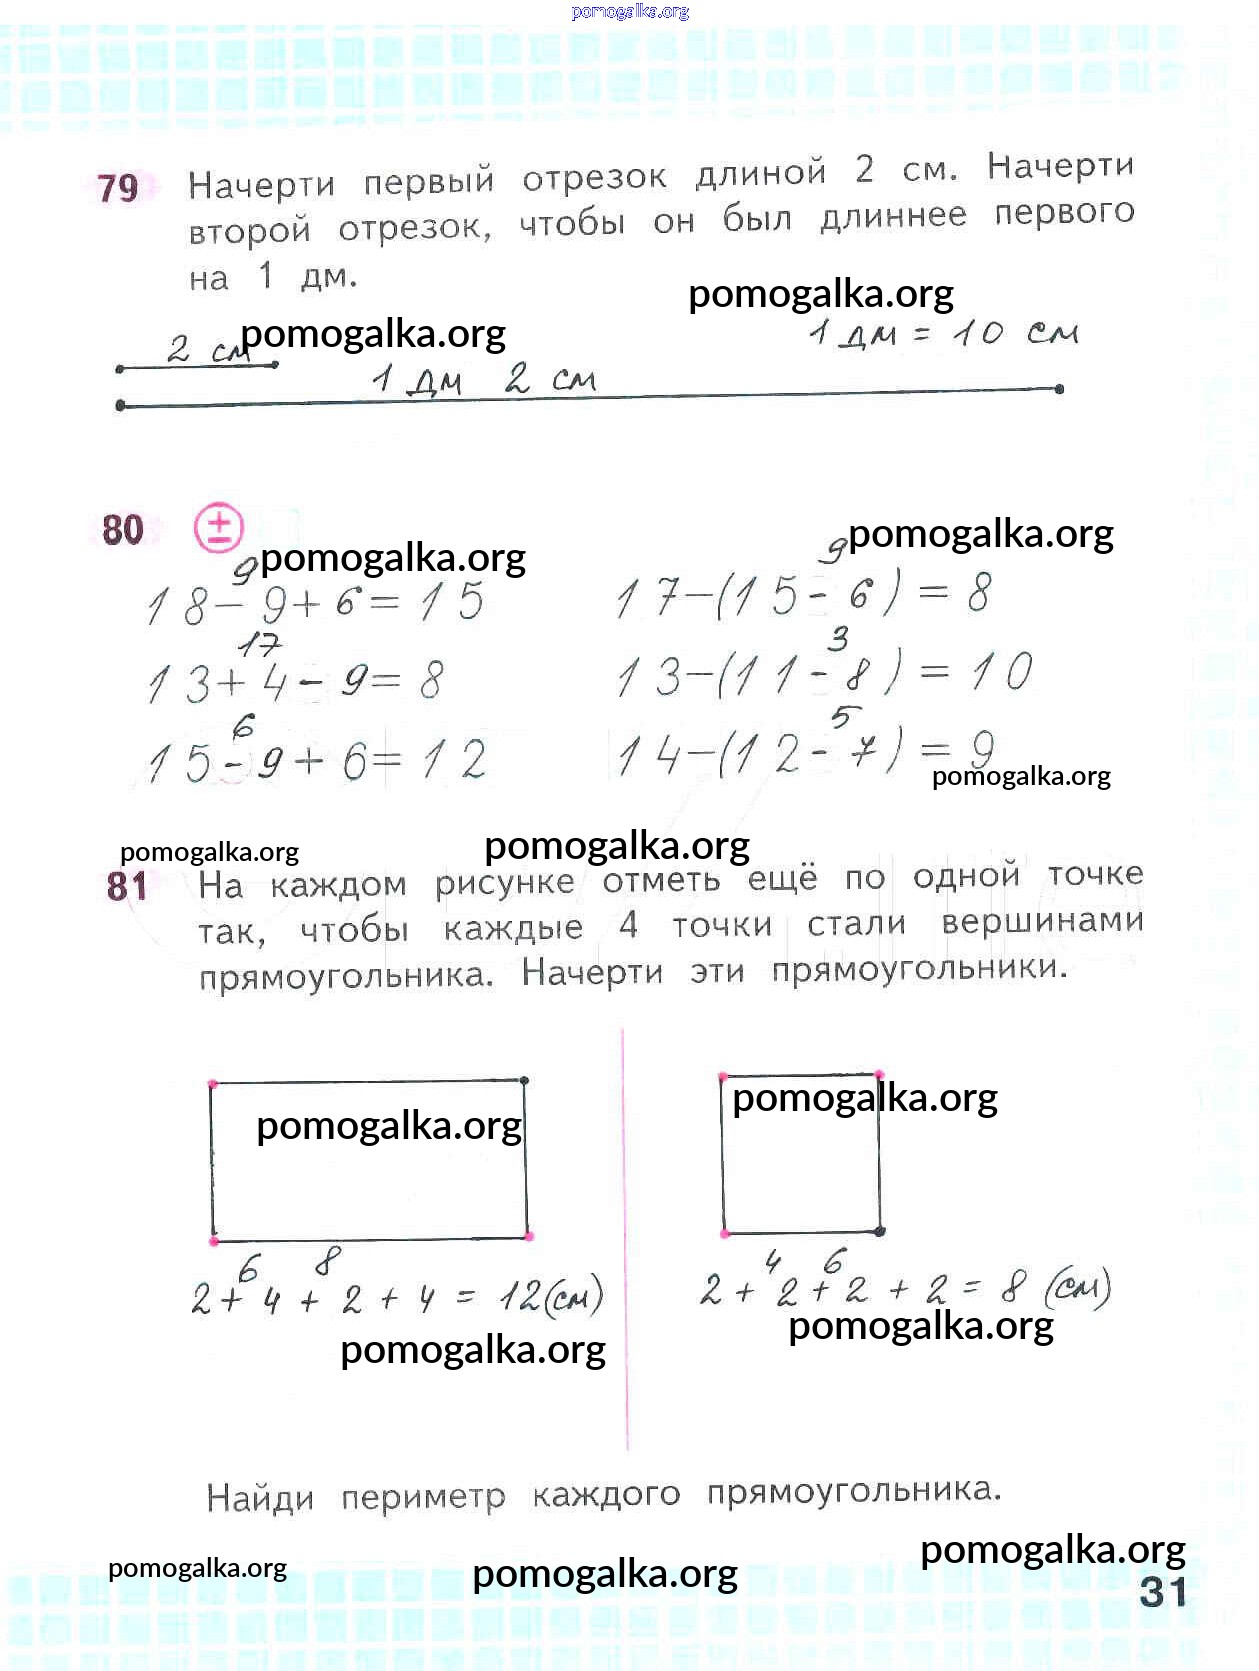 pomogalka.org
79 Начерти первый отрезок длиной 2 см. Начерти
второй отрезок, чтобы он был длиннее первого
на 1 дм.
pomogalka.org
pomogalka.org
2 см
1 дм = 10 см
1 дм 2 см
80 ±
pomogalka.org
pomogalka.org
9
9
18-9+6=15
17-(15-6)=8
17
3
13+4-9=8
13-(11-8)=10
6
5
15-9+6=12
14-(12-7)=9
pomogalka.org
pomogalka.org
pomogalka.org
81 На каждом рисунке отметь ещё по одной точке
так, чтобы каждые 4 точки стали вершинами
прямоугольника. Начерти эти прямоугольники.
pomogalka.org
pomogalka.org
6 8
4 6
2+4+2+4=12(см)
2+2+2+2=8 (см)
pomogalka.org
pomogalka.org
Найди периметр каждого прямоугольника.
pomogalka.org
pomogalka.org
pomogalka.org
31